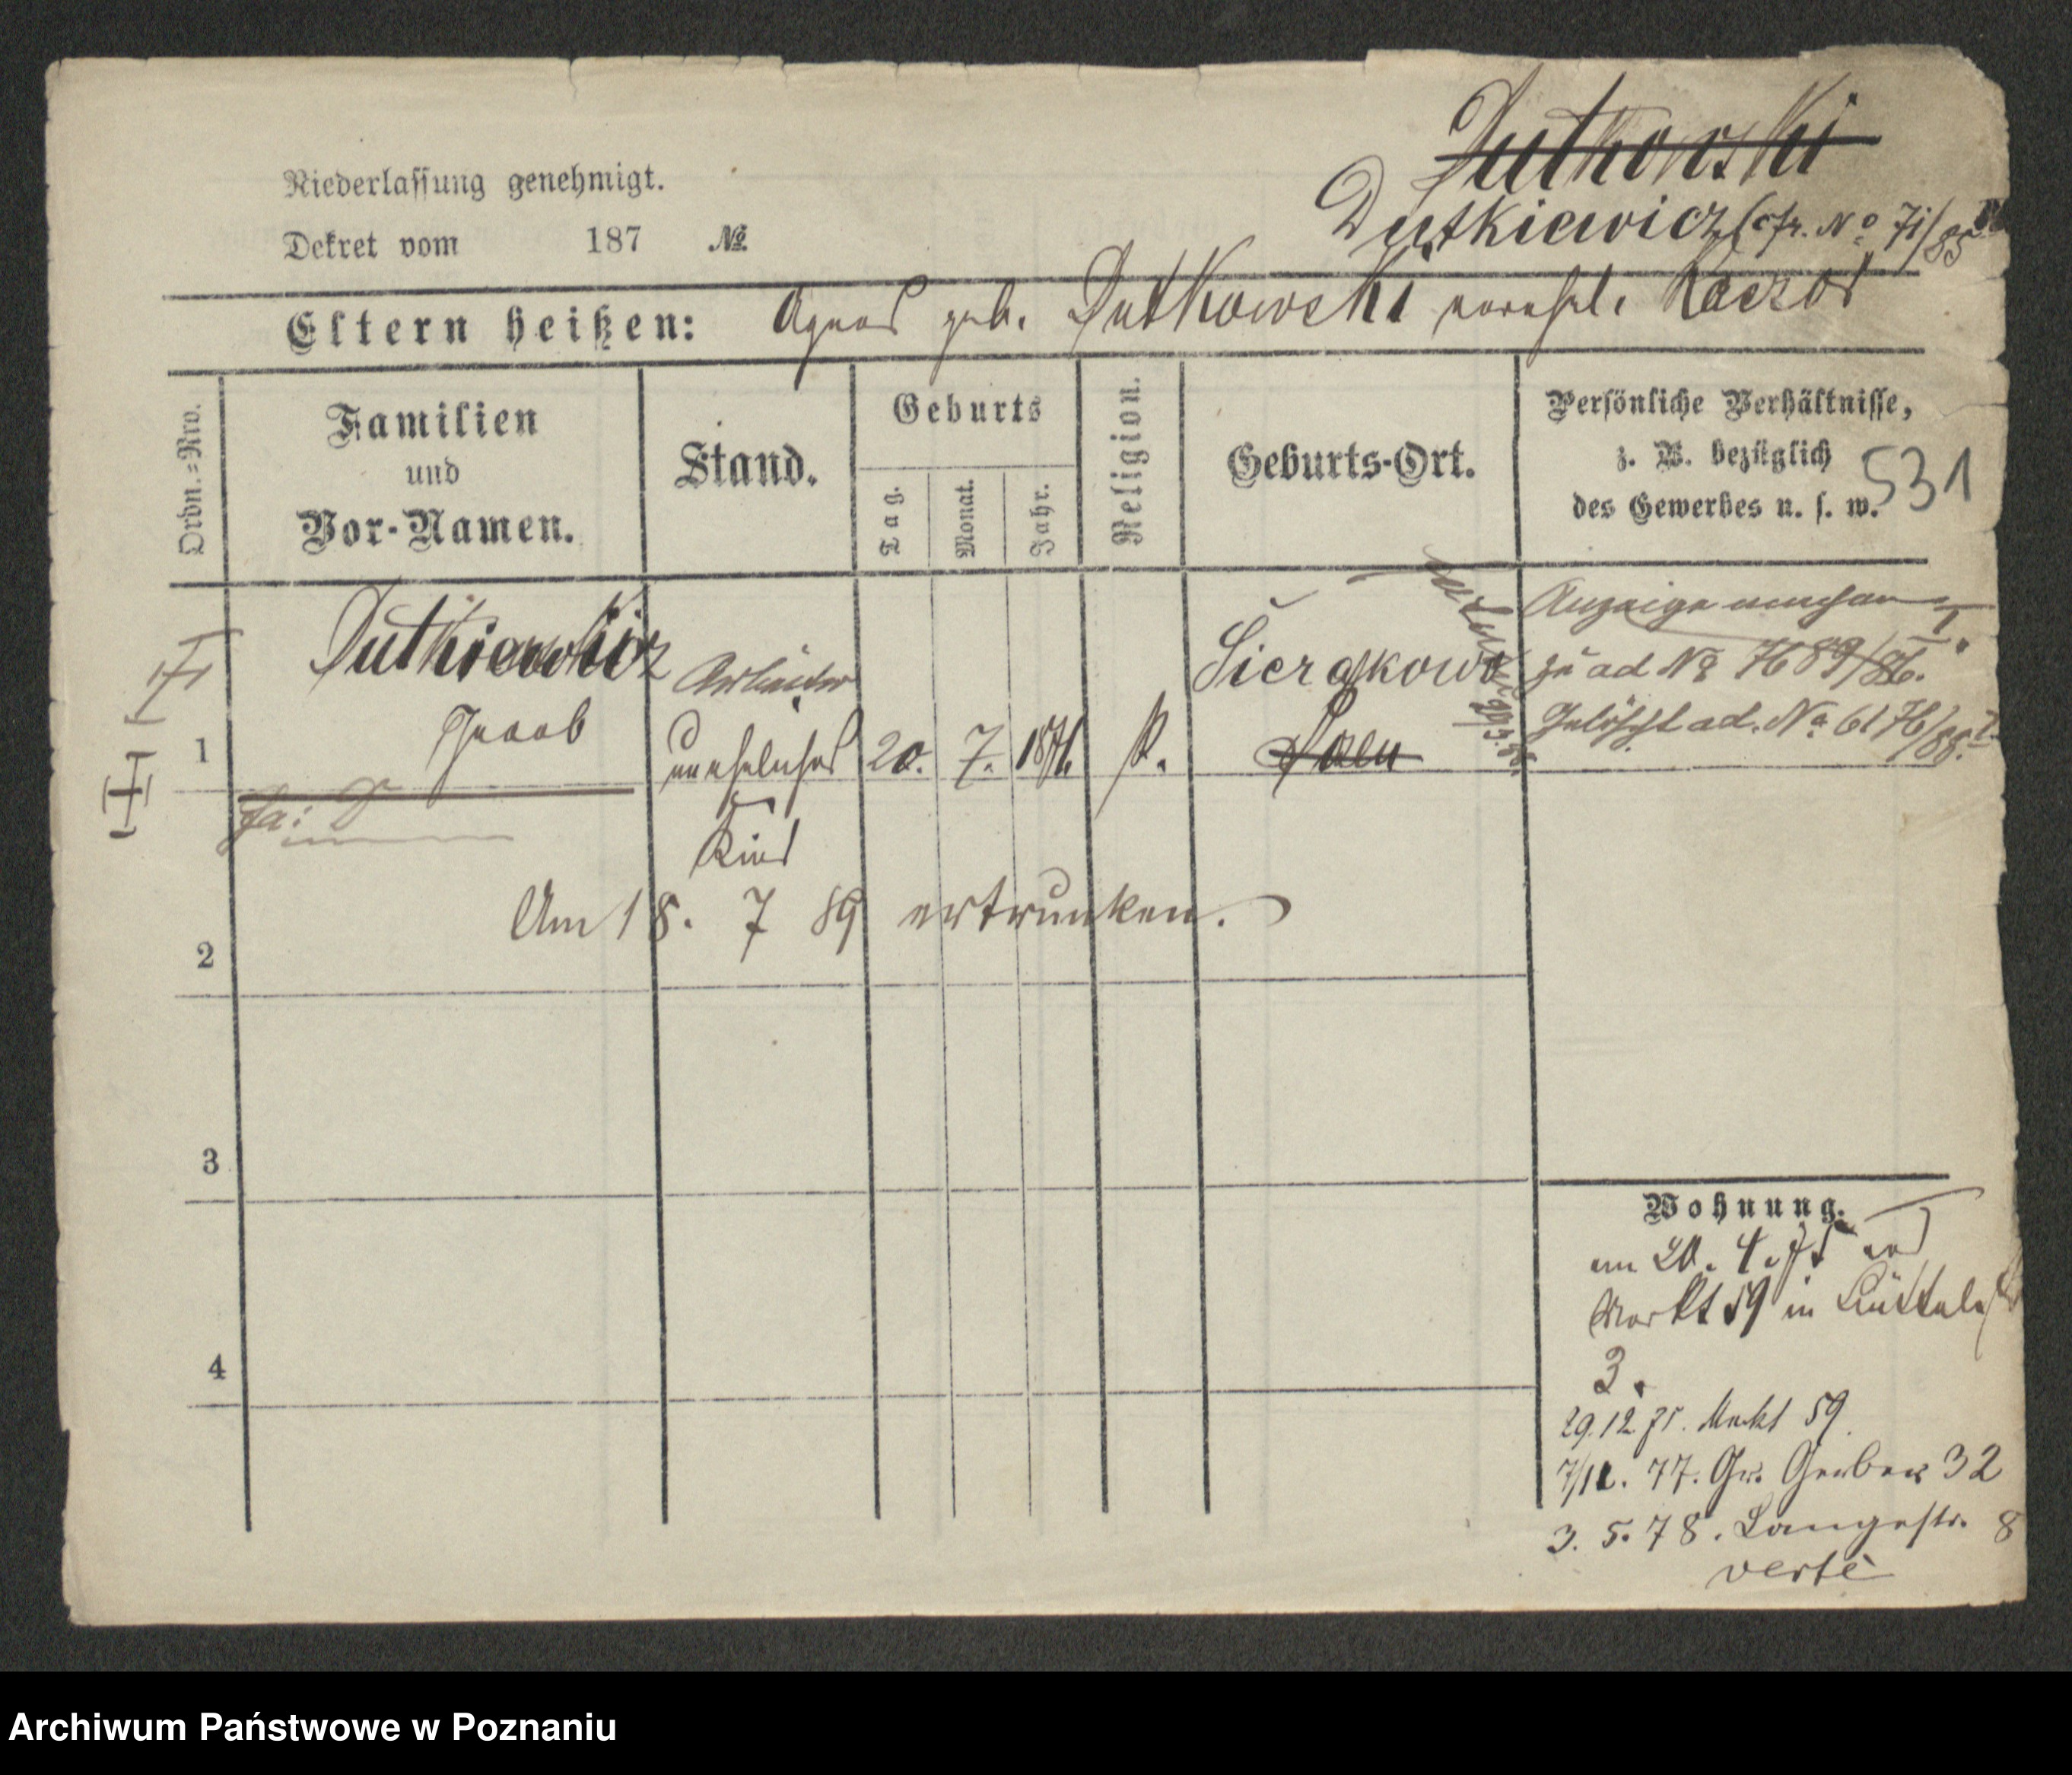 Dutkowski
Niederlassung genehmigt.
Dutkiewicz (cfr. No 71/85
Dekret vom 187 No.
Eltern heißen: Agnes geb. Dutkowski verehel. Kaczor
Ordn.-Nro.
Familien
und
Vor-Namen.
Stand.
Geburts
Tag.
Monat.
Jahr.
Religion.
Geburts-Ort.
Persönliche Verhältnisse,
z. B. bezüglich
des Gewerbes u. s. w.
531
Dutkiewicz
Jacob
Arbeiter
uneheliches
Kind
1
20. 7. 1871. K.
Sierakowo
Anzeige
zu ad No 7689/86.
Gelöscht ad. No 6176/88.
Fa: D
Am 18. 7 89 ertrunken.
2
3
4
Wohnung.
am 20. 4. 75
Markt 59 in Büttel
3.
29.12.75. Markt 59.
7/12. 77. Gr. Gerber 32
3. 5. 78. Langestr. 8
verte
Archiwum Państwowe w Poznaniu